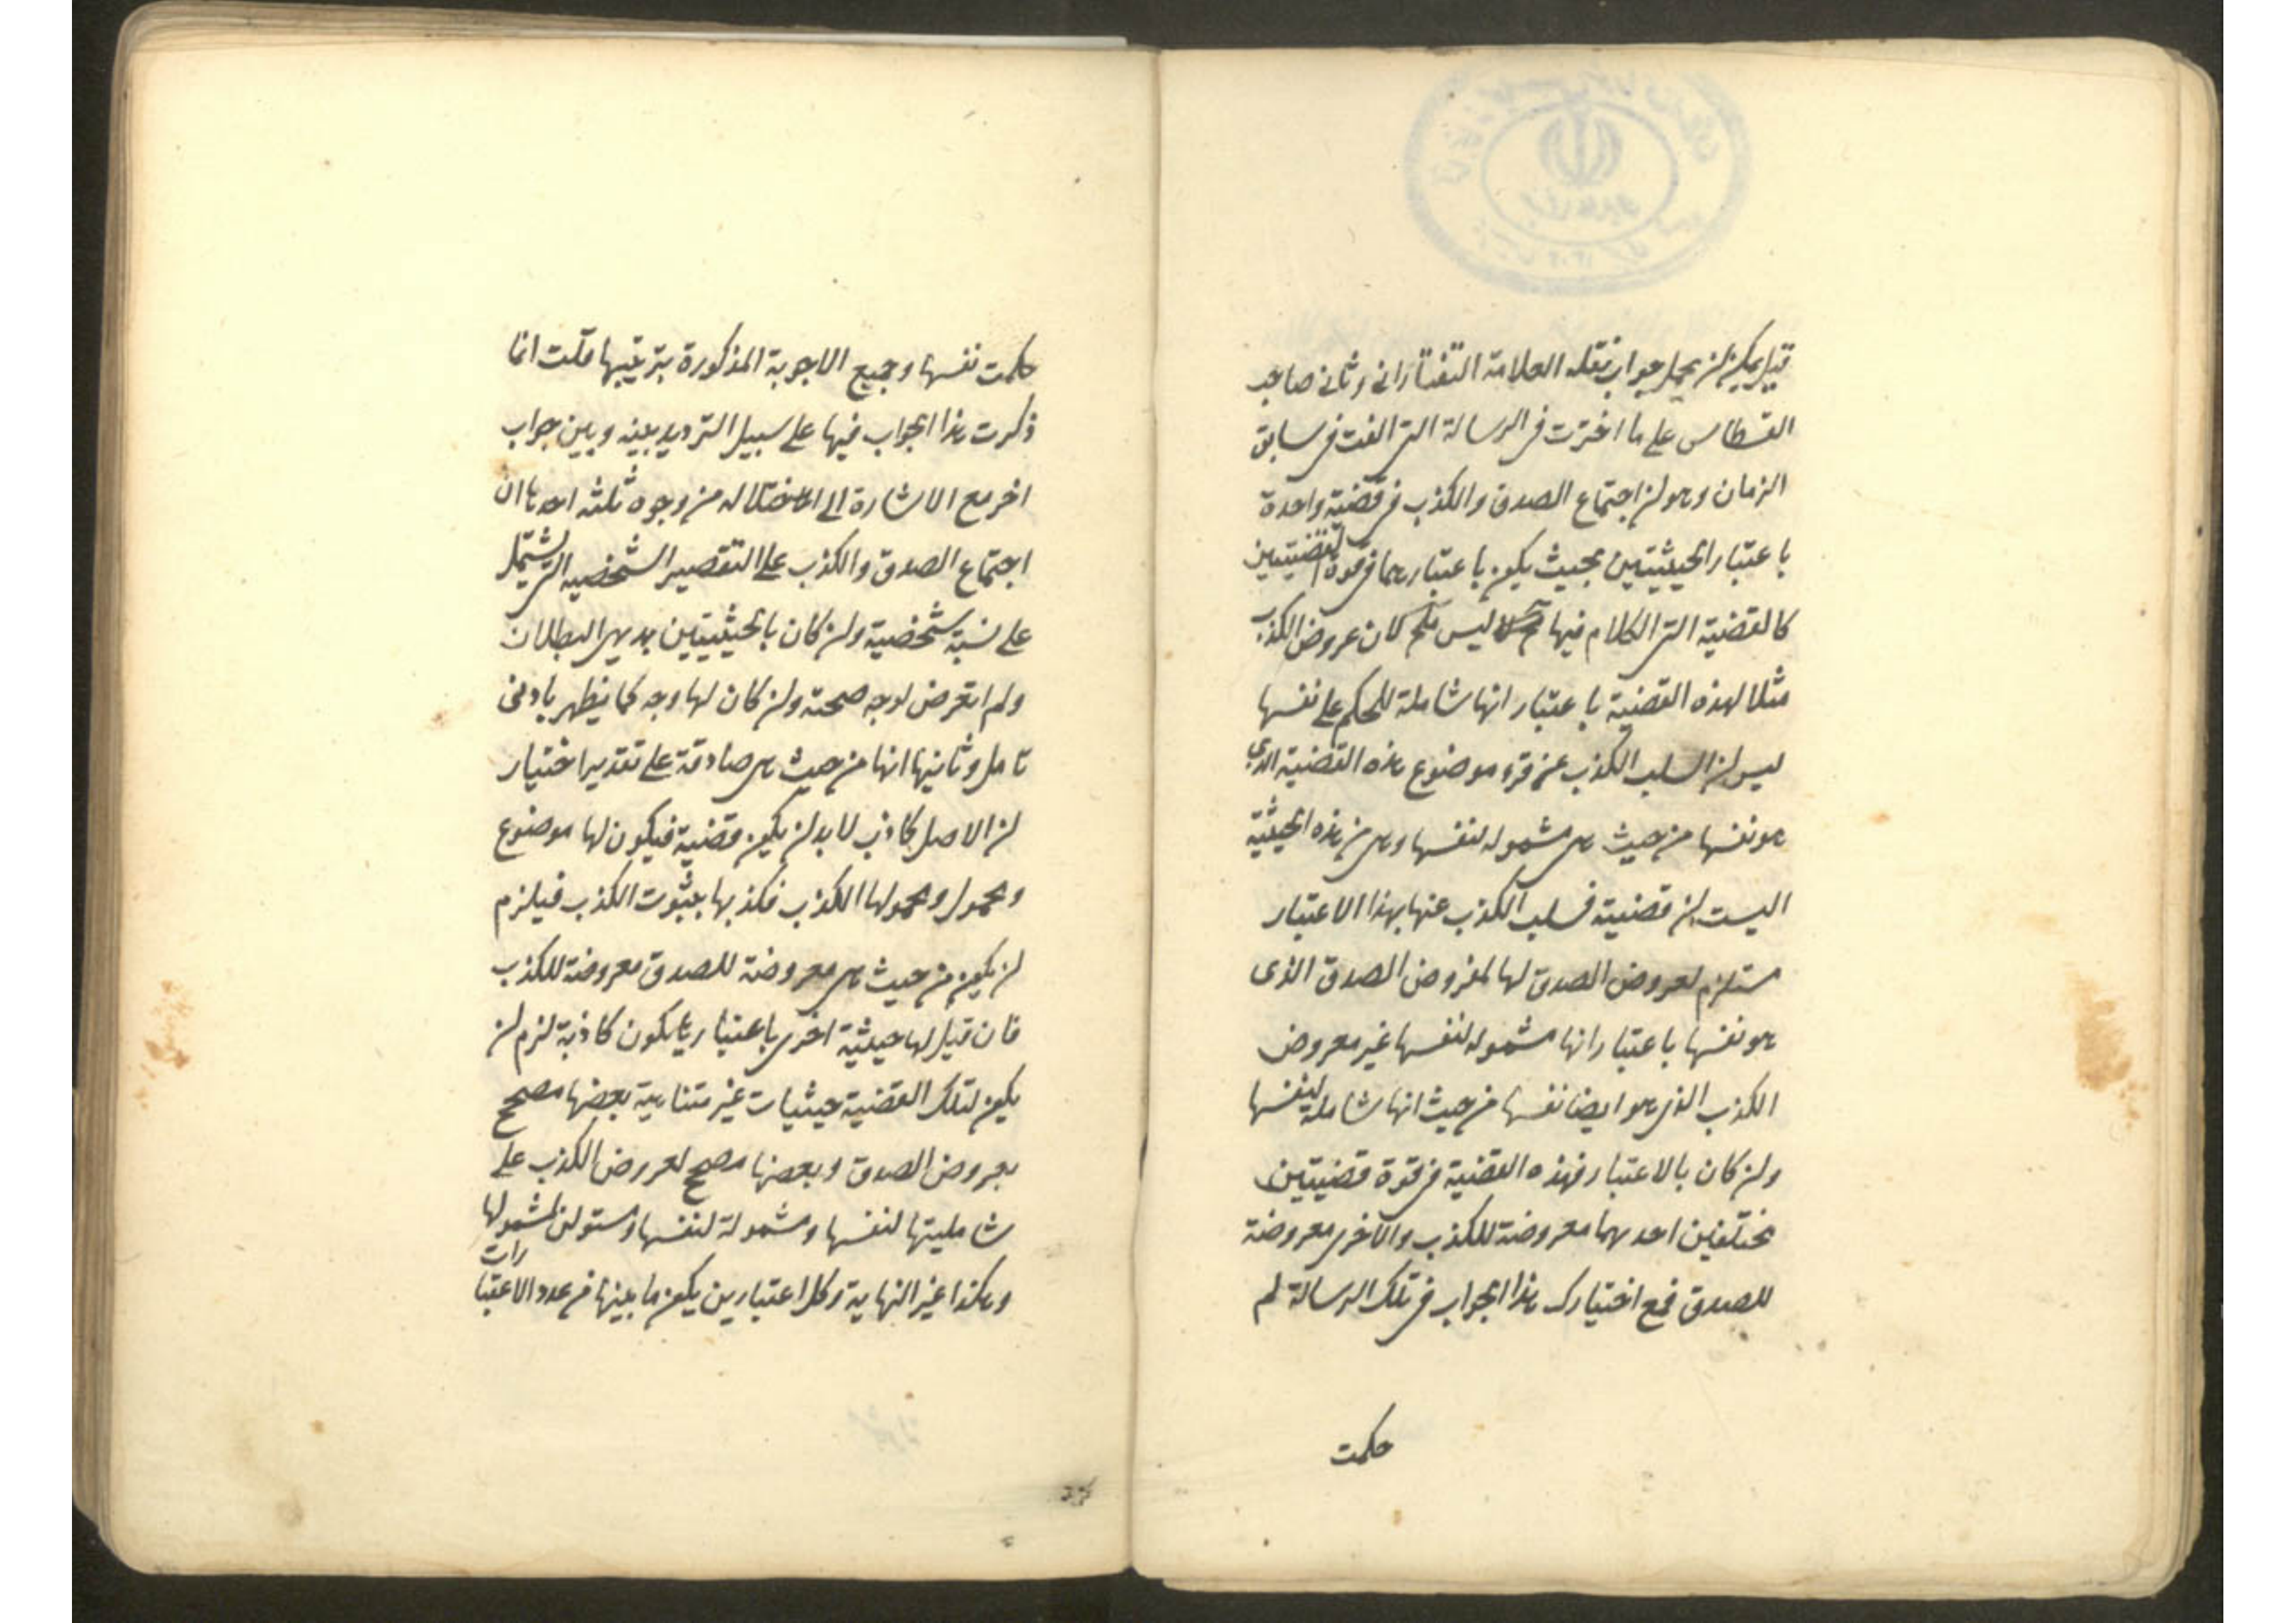 قيل يمكن ان يحمل جواب نقله العلامة التفتازانى وثانى صاحب
القسطاس على ما اخترت فى الرسالة التى الفت فى سابق
الزمان وهو ان اجتماع الصدق والكذب فى قضية واحدة
باعتبار الحيثيتين بحيث يكون باعتبارهما فى قوة القضيتين
كالقضية التى الكلام فيها ليس بمح لان عروض الكذب
مثلا لهذه القضية باعتبار انها شاملة للحكم على نفسها
ليس ان السلب الكذب عن فرد موضوع هذه القضية الذى
هو نفسها من حيث هى مشموله لنفسها وهى من هذه الحيثية
اليست ان قضية فسلب الكذب عنها بهذا الاعتبار
مستلزم لعروض الصدق لها لمفروض الصدق الذى
هو نفسها باعتبار انها مشموله لنفسها غير معروض
الكذب الذى هو ايضا نفسها من حيث انها شاملة لنفسها
وان كان بالاعتبار فهذه القضية فى قوة قضيتين
مختلفين احدهما معروضة للكذب والاخرى معروضة
للصدق فمع اختيارك هذا الجواب فى تلك الرسالة لم
حكمت
حكمت نفسها وجميع الاجوبة المذكورة بترتيبها قلت انما
ذكرت هذا الجواب فيها على سبيل الترديد بينه وبين جواب
اخر مع الاشارة الى اختلاله من وجوه ثلثه احدها ان
اجتماع الصدق والكذب على الشخصيه التى يشتمل
على نسبة شخصية وان كان بالحيثيتين بديهى البطلان
ولم اتعرض لوجه صحته وان كان لها وجه كما يظهر بادنى
تامل وثانيها انها من حيث هى صادقة على تقدير اختيار
ان الاصل كاذب لابد ان يكون قضية فيكون لها موضوع
ومحمول ومحمولها الكذب فكذبها بثبوت الكذب فيلزم
ان يكون من حيث هى معروضة للصدق معروضة للكذب
فان قيل لها حيثية اخرى باعتبارها يكون كاذبة لزم ان
يكون لتلك القضية حيثيات غير متناهية بعضها مصحح
لعروض الصدق وبعضها مصحح لعروض الكذب على
شامليتها لنفسها ومشمولة لنفسها لمشمولها
وهكذا غير النهاية وكل اعتبارين يكون ما بينها من عدد الاعتبارات